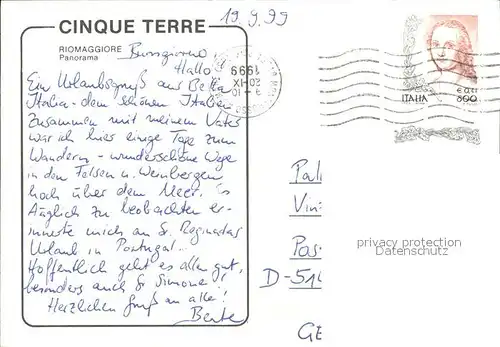 19.9.99
CINQUE TERRE
RIOMAGGIORE
Panorama
Buongiorno
Hallo
Ein Urlaubsgruß aus Bella
Italia - dem schönen Italien
Zusammen mit meinem Vater
war ich hier einige Tage zum
Wandern - wunderschöne Wege
in den Felsen u. Weinbergen
hoch über dem Meer. Es
täglich zu beobachten er-
innerte mich an S. Reginadas
Urlaub in Portugal...
Hoffentlich geht es allen gut,
besonders auch S. Simone!
Herzlichen Gruß an alle!
Bente
1999
20-IX
9-10
ITALIA
€ 0,41
800
Pall
Vin
Pos
privacy protection
Datenschutz
D-51
GE